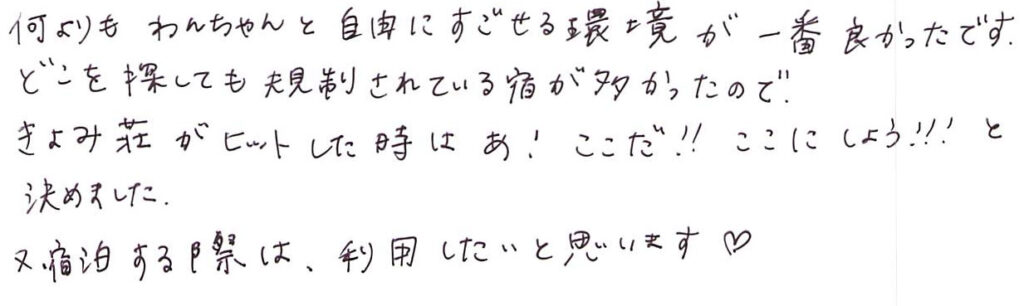 何よりも わんちゃんと自由にすごせる環境が一番良かったです.
どこを探しても規制されている宿が多かったので.
きよみ荘がヒットした時はあ! ここだ!! ここにしよう!!! と
決めました.
又.宿泊する際は、利用したいと思います♡